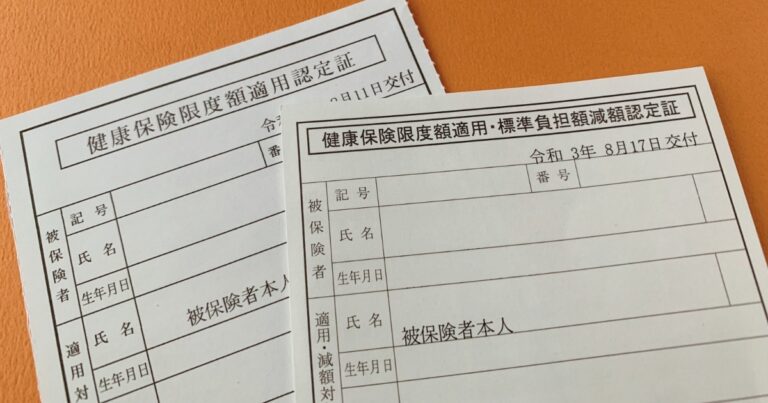 健康保険限度額適用認定証
8月11日 交付
番
被保険者
記号
氏名
生年月日
適用対
氏名
被保険者本人
生年月日
健康保険限度額適用・標準負担額減額認定証
令和 3年 8月17日 交付
被保険者
記号
番号
氏名
生年月日
適用・減額対
氏名
被保険者本人
生年月日